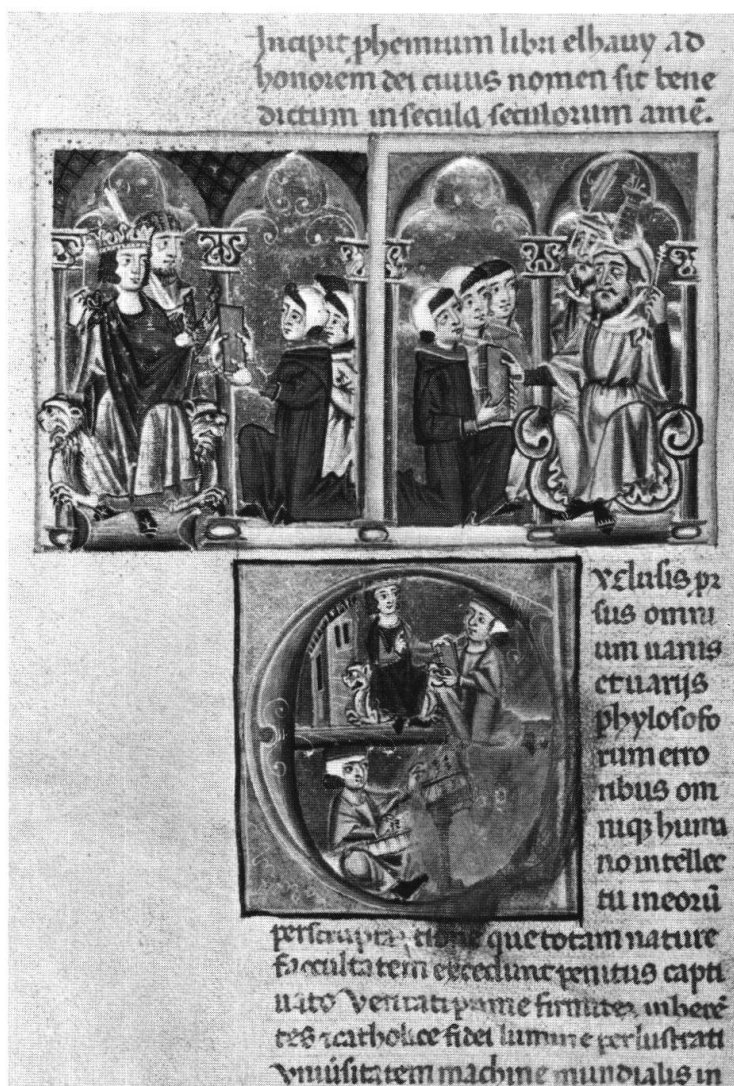 Incipit phemium libri elhauy ad
honorem dei cuius nomen sit bene
dictum in secula seculorum amē.
Exclusis pr
sus omni
um uanis
et uariis
phylosofo
rum erro
ribus om
niqꝫ huma
no intellec
tu in eorū
perscrupta tione que totam nature
facultatem excedunt penitus capti
uato Veritati prime firmiter inherē
tes ⁊ catholice fidei lumine perlustrati
vniūsitatem machine mundialis in